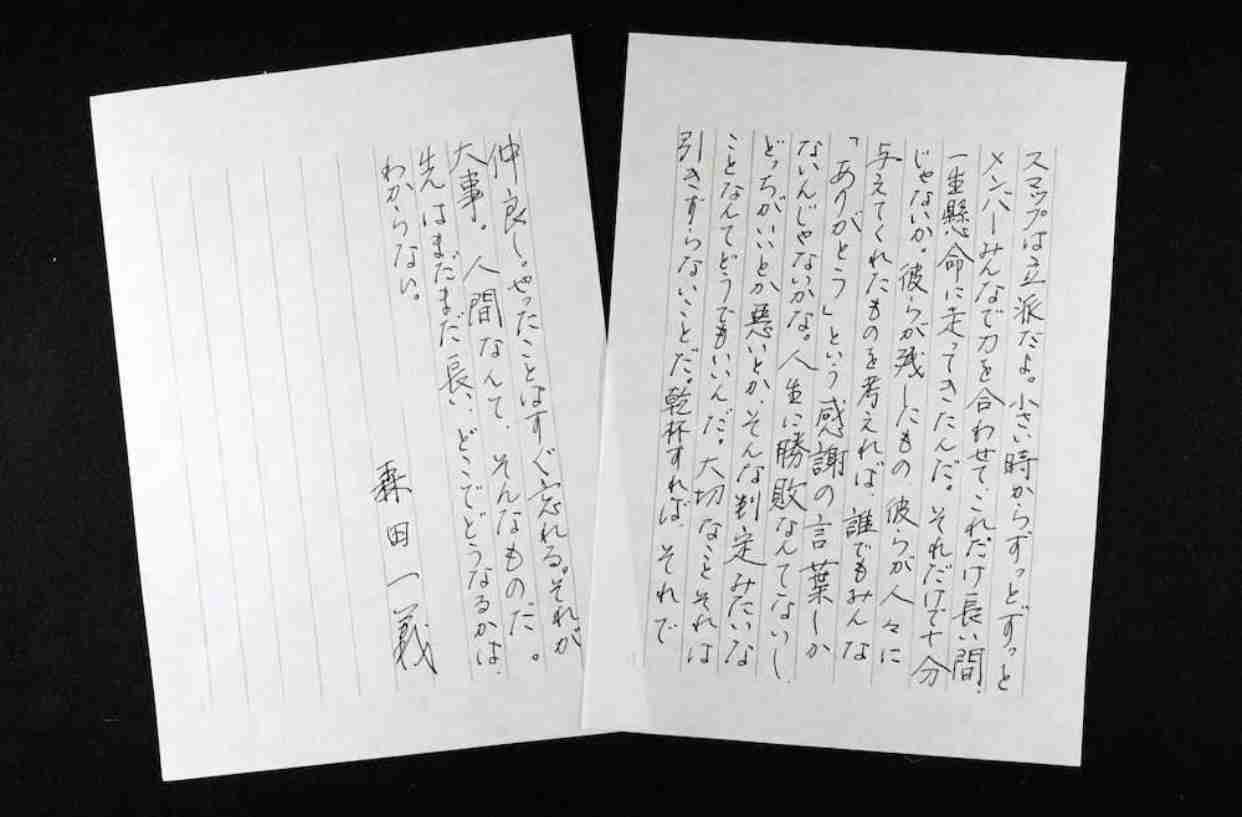 スマップは立派だよ。小さい時からずっとずっと
メンバーみんなで力を合わせて、これだけ長い間、
一生懸命に走ってきたんだ。それだけで十分
じゃないか。彼らが残したもの彼らが人々に
与えてくれたものを考えれば、誰でもみんな
「ありがとう」という感謝の言葉しか
ないんじゃないかな。人生に勝敗なんてないし、
どっちがいいとか悪いとか、そんな判定みたいな
ことなんてどうでもいいんだ。大切なことそれは
引きずらないことだ。乾杯すれば、それで
仲良し。やったことはすぐ忘れる。それが
大事。人間なんて、そんなものだ。
先はまだまだ長い、どこでどうなるかは、
わからない。
森田一義